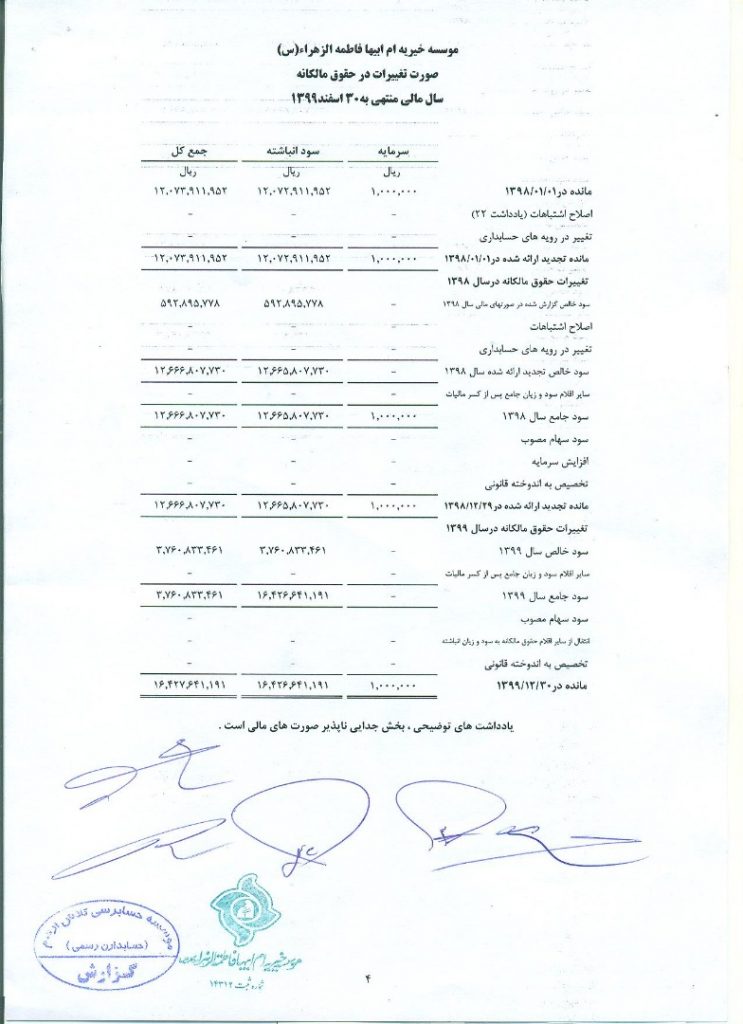 موسسه خیریه ام ابیها فاطمه الزهراء(س)
صورت تغییرات در حقوق مالکانه
سال مالی منتهی به ۳۰ اسفند۱۳۹۹
سرمایه سود انباشته جمع کل
ریال ریال ریال
مانده در۱۳۹۸/۰۱/۰۱ ۱,۰۰۰,۰۰۰ ۱۲,۰۷۲,۹۱۱,۹۵۲ ۱۲,۰۷۳,۹۱۱,۹۵۲
اصلاح اشتباهات (یادداشت ۲۲) - - -
تغییر در رویه های حسابداری - - -
مانده تجدید ارائه شده در۱۳۹۸/۰۱/۰۱ ۱,۰۰۰,۰۰۰ ۱۲,۰۷۲,۹۱۱,۹۵۲ ۱۲,۰۷۳,۹۱۱,۹۵۲
تغییرات حقوق مالکانه درسال ۱۳۹۸
سود خالص گزارش شده در صورتهای مالی سال ۱۳۹۸ - ۵۹۲,۸۹۵,۷۷۸ ۵۹۲,۸۹۵,۷۷۸
اصلاح اشتباهات - - -
تغییر در رویه های حسابداری - - -
سود خالص تجدید ارائه شده سال ۱۳۹۸ - ۱۲,۶۶۵,۸۰۷,۷۳۰ ۱۲,۶۶۶,۸۰۷,۷۳۰
سایر اقلام سود و زیان جامع پس از کسر مالیات - - -
سود جامع سال ۱۳۹۸ ۱,۰۰۰,۰۰۰ ۱۲,۶۶۵,۸۰۷,۷۳۰ ۱۲,۶۶۶,۸۰۷,۷۳۰
سود سهام مصوب - - -
افزایش سرمایه - - -
تخصیص به اندوخته قانونی - - -
مانده تجدید ارائه شده در۱۳۹۸/۱۲/۲۹ ۱,۰۰۰,۰۰۰ ۱۲,۶۶۵,۸۰۷,۷۳۰ ۱۲,۶۶۶,۸۰۷,۷۳۰
تغییرات حقوق مالکانه درسال ۱۳۹۹
سود خالص سال ۱۳۹۹ - ۳,۷۶۰,۸۳۳,۴۶۱ ۳,۷۶۰,۸۳۳,۴۶۱
سایر اقلام سود و زیان جامع پس از کسر مالیات - - -
سود جامع سال ۱۳۹۹ - ۱۶,۴۲۶,۶۴۱,۱۹۱ ۳,۷۶۰,۸۳۳,۴۶۱
سود سهام مصوب - - -
انتقال از سایر اقلام حقوق مالکانه به سود و زیان انباشته - - -
تخصیص به اندوخته قانونی - - -
مانده در۱۳۹۹/۱۲/۳۰ ۱,۰۰۰,۰۰۰ ۱۶,۴۲۶,۶۴۱,۱۹۱ ۱۶,۴۲۷,۶۴۱,۱۹۱
یادداشت های توضیحی ، بخش جدایی ناپذیر صورت های مالی است .
موسسه حسابرسی تلاش
(حسابداران رسمی)
گزارش
موسسه خیریه ام ابیها فاطمة الزهراء
شماره ثبت ۱۴۳۱۲
۴